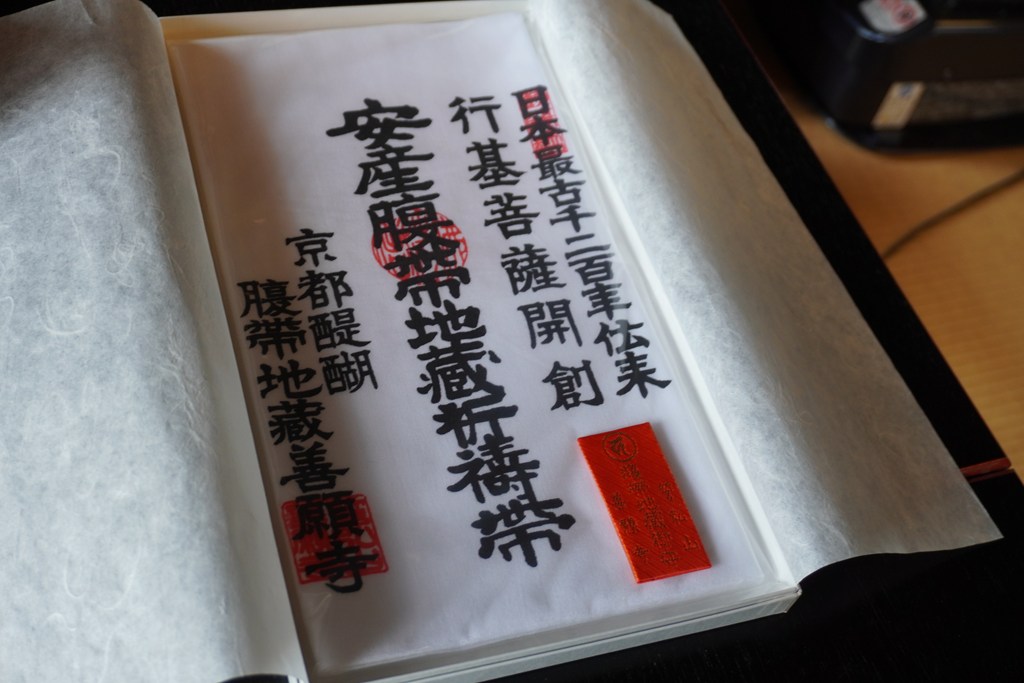 日本最古千二百年伝来
行基菩薩開創
安産腹帯地蔵祈祷帯
京都醍醐
腹帯地蔵善願寺